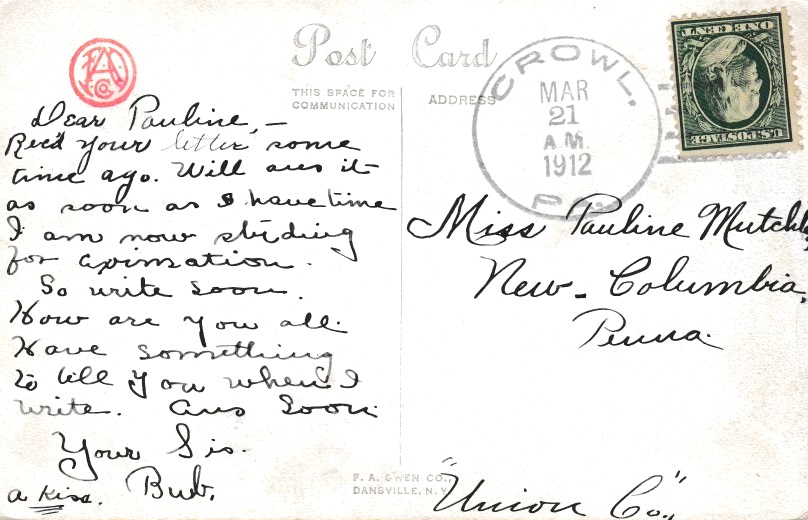 Post Card
THIS SPACE FOR
COMMUNICATION
ADDRESS
CROWL,
MAR
21
A.M.
1912
PA.
ONE CENT
U.S. POSTAGE
Dear Pauline,—
Rec'd your letter some
time ago. Will ans it
as soon as I have time
I am now studing
for aximation.
So write soon.
How are you all.
Have something
to tell you when I
write. Ans Soon
Your Sis.
Bub.
a Kiss.
Miss Pauline Mutchler
New-Columbia,
Penna.
"Union Co",
F. A. OWEN CO.,
DANSVILLE, N.Y.